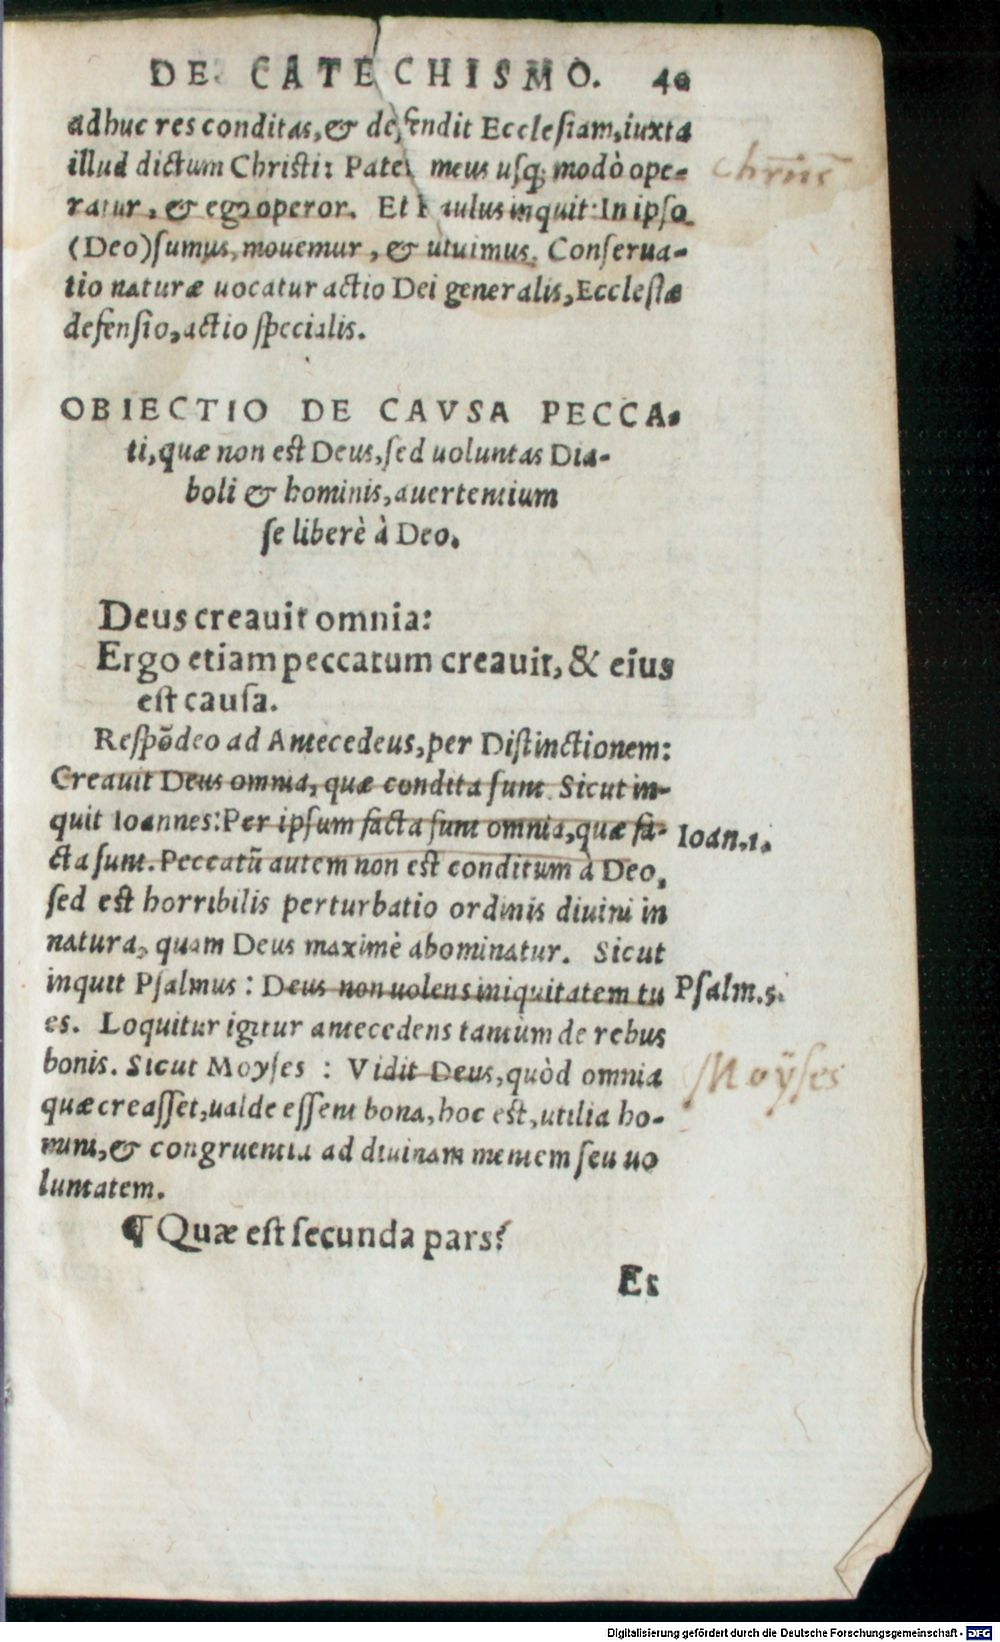 DE CATECHISMO. 40
adhuc res conditas, & defendit Ecclesiam, iuxta
illud dictum Christi: Pater meus usq; modò ope-
ratur, & ego operor. Et Paulus inquit: In ipso
(Deo) sumus, mouemur, & uiuimus. Conserua-
tio naturæ uocatur actio Dei generalis, Ecclesiæ
defensio, actio specialis.
OBIECTIO DE CAVSA PECCA-
ti, quæ non est Deus, sed uoluntas Dia-
boli & hominis, auertentium
se liberè à Deo.
Deus creauit omnia:
Ergo etiam peccatum creauit, & eius
est causa.
Respõdeo ad Antecedens, per Distinctionem:
Creauit Deus omnia, quæ condita sunt. Sicut in-
quit Ioannes: Per ipsum facta sunt omnia, quæ fa-
cta sunt. Peccatũ autem non est conditum à Deo,
sed est horribilis perturbatio ordinis diuini in
natura, quam Deus maximè abominatur. Sicut
inquit Psalmus: Deus non uolens iniquitatem tu
es. Loquitur igitur antecedens tantùm de rebus
bonis. Sicut Moyses: Vidit Deus, quòd omnia
quæ creasset, ualde essent bona, hoc est, utilia ho-
mini, & congruentia ad diuinam mentem seu uo
luntatem.
¶ Quæ est secunda pars?
Es
Ioan.1.
Psalm.5.
Moÿses
Digitalisierung gefördert durch die Deutsche Forschungsgemeinschaft - DFG